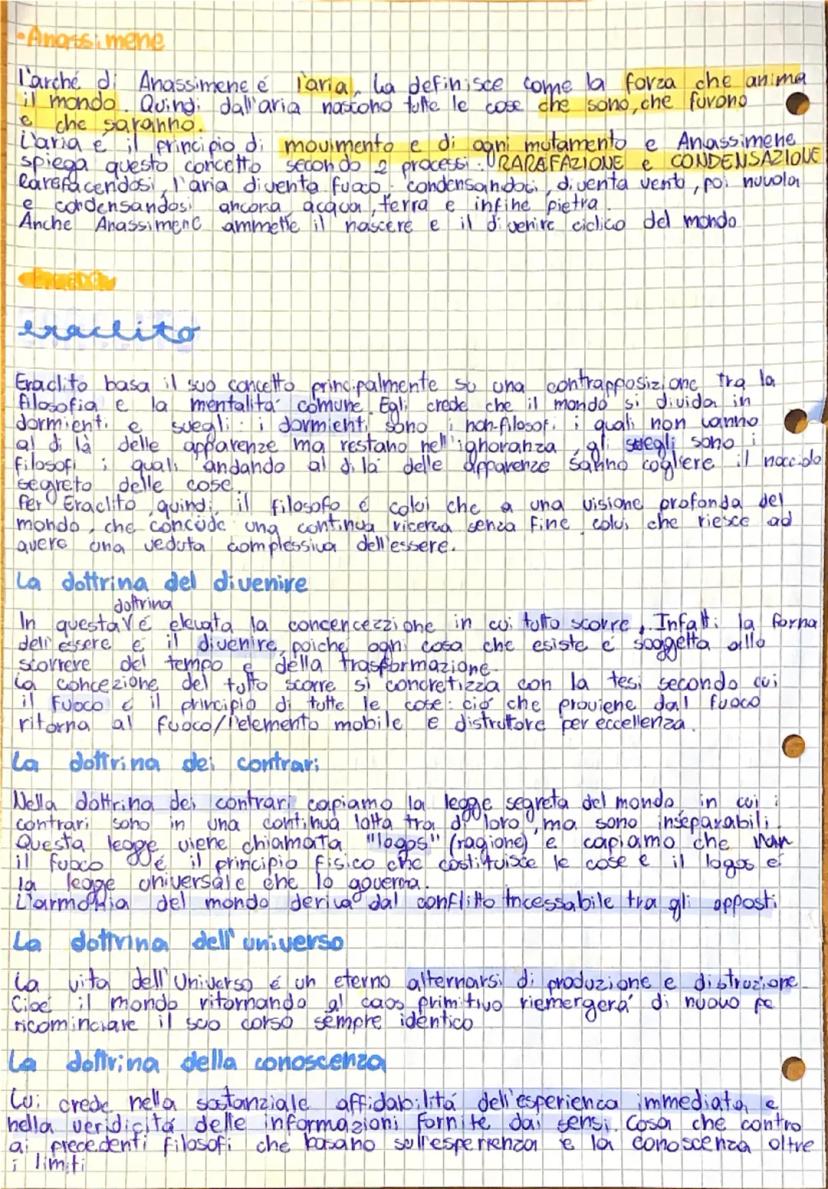 • Anassimene
L'arché di Anassimene é l'aria. La definisce come la forza che anima
il mondo. Quindi dall'aria nascono tutte le cose che sono, che furono
e che saranno.
L'aria e il principio di movimento e di ogni mutamento e Anassimene
spiega questo concetto secondo 2 processi: RARAFAZIONE e CONDENSAZIONE
Rarefacendosi, l'aria diventa fuoco. condensandosi, diventa vento, poi nuvola
e condensandosi ancora acqua, terra e infine pietra.
Anche Anassimene ammette il nascere e il divenire ciclico del mondo
eraclito
Eraclito basa il suo concetto principalmente su una contrapposizione tra la
filosofia e la mentalitá comune. Egli crede che il mondo si divida in
dormienti e svegli: i dormienti sono i non-filosofi i quali non vanno
al di lá delle apparenze ma restano nell'ignoranza, gli svegli sono i
filosofi i quali andando al di lá delle apparenze sanno cogliere il nocciolo
segreto delle cose.
Per Eraclito, quindi, il filosofo é colui che a una visione profonda del
mondo, che conduce una continua ricerca senza fine, colui che riesce ad
avere una veduta complessiva dell'essere.
La dottrina del divenire
dottrina
In questa v é elevata la concencezzione in cui tutto scorre. Infatti la forma
dell'essere é il divenire, poiche ogni cosa che esiste é soggetta allo
scorrere del tempo e della trasformazione.
La concezione del tutto scorre si concretizza con la tesi secondo cui
il fuoco é il principio di tutte le cose: ció che proviene dal fuoco
ritorna al fuoco/l'elemento mobile e distruttore per eccellenza.
La dottrina dei contrari
Nella dottrina dei contrari capiamo la legge segreta del mondo, in cui i
contrari sono in una continua lotta tra di loro, ma sono inseparabili.
Questa legge viene chiamata "logos" (ragione) e capiamo che
il fuoco é il principio fisico che costituisce le cose e il logos é
la legge universale che lo governa.
L'armonia del mondo deriva dal conflitto incessabile tra gli opposti
La dottrina dell'universo
La vita dell'Universo é un eterno alternarsi di produzione e distruzione
Cioé il mondo ritornando al caos primitivo riemergerá di nuovo pe
ricominciare il suo corso sempre identico
La dottrina della conoscenza
Lui crede nella sostanziale affidabilitá dell'esperienza immediata e
nella veridicitá delle informazioni fornite dai sensi. Cosa che contro
ai precedenti filosofi che basano sull'esperienza e la conoscenza oltre
i limiti